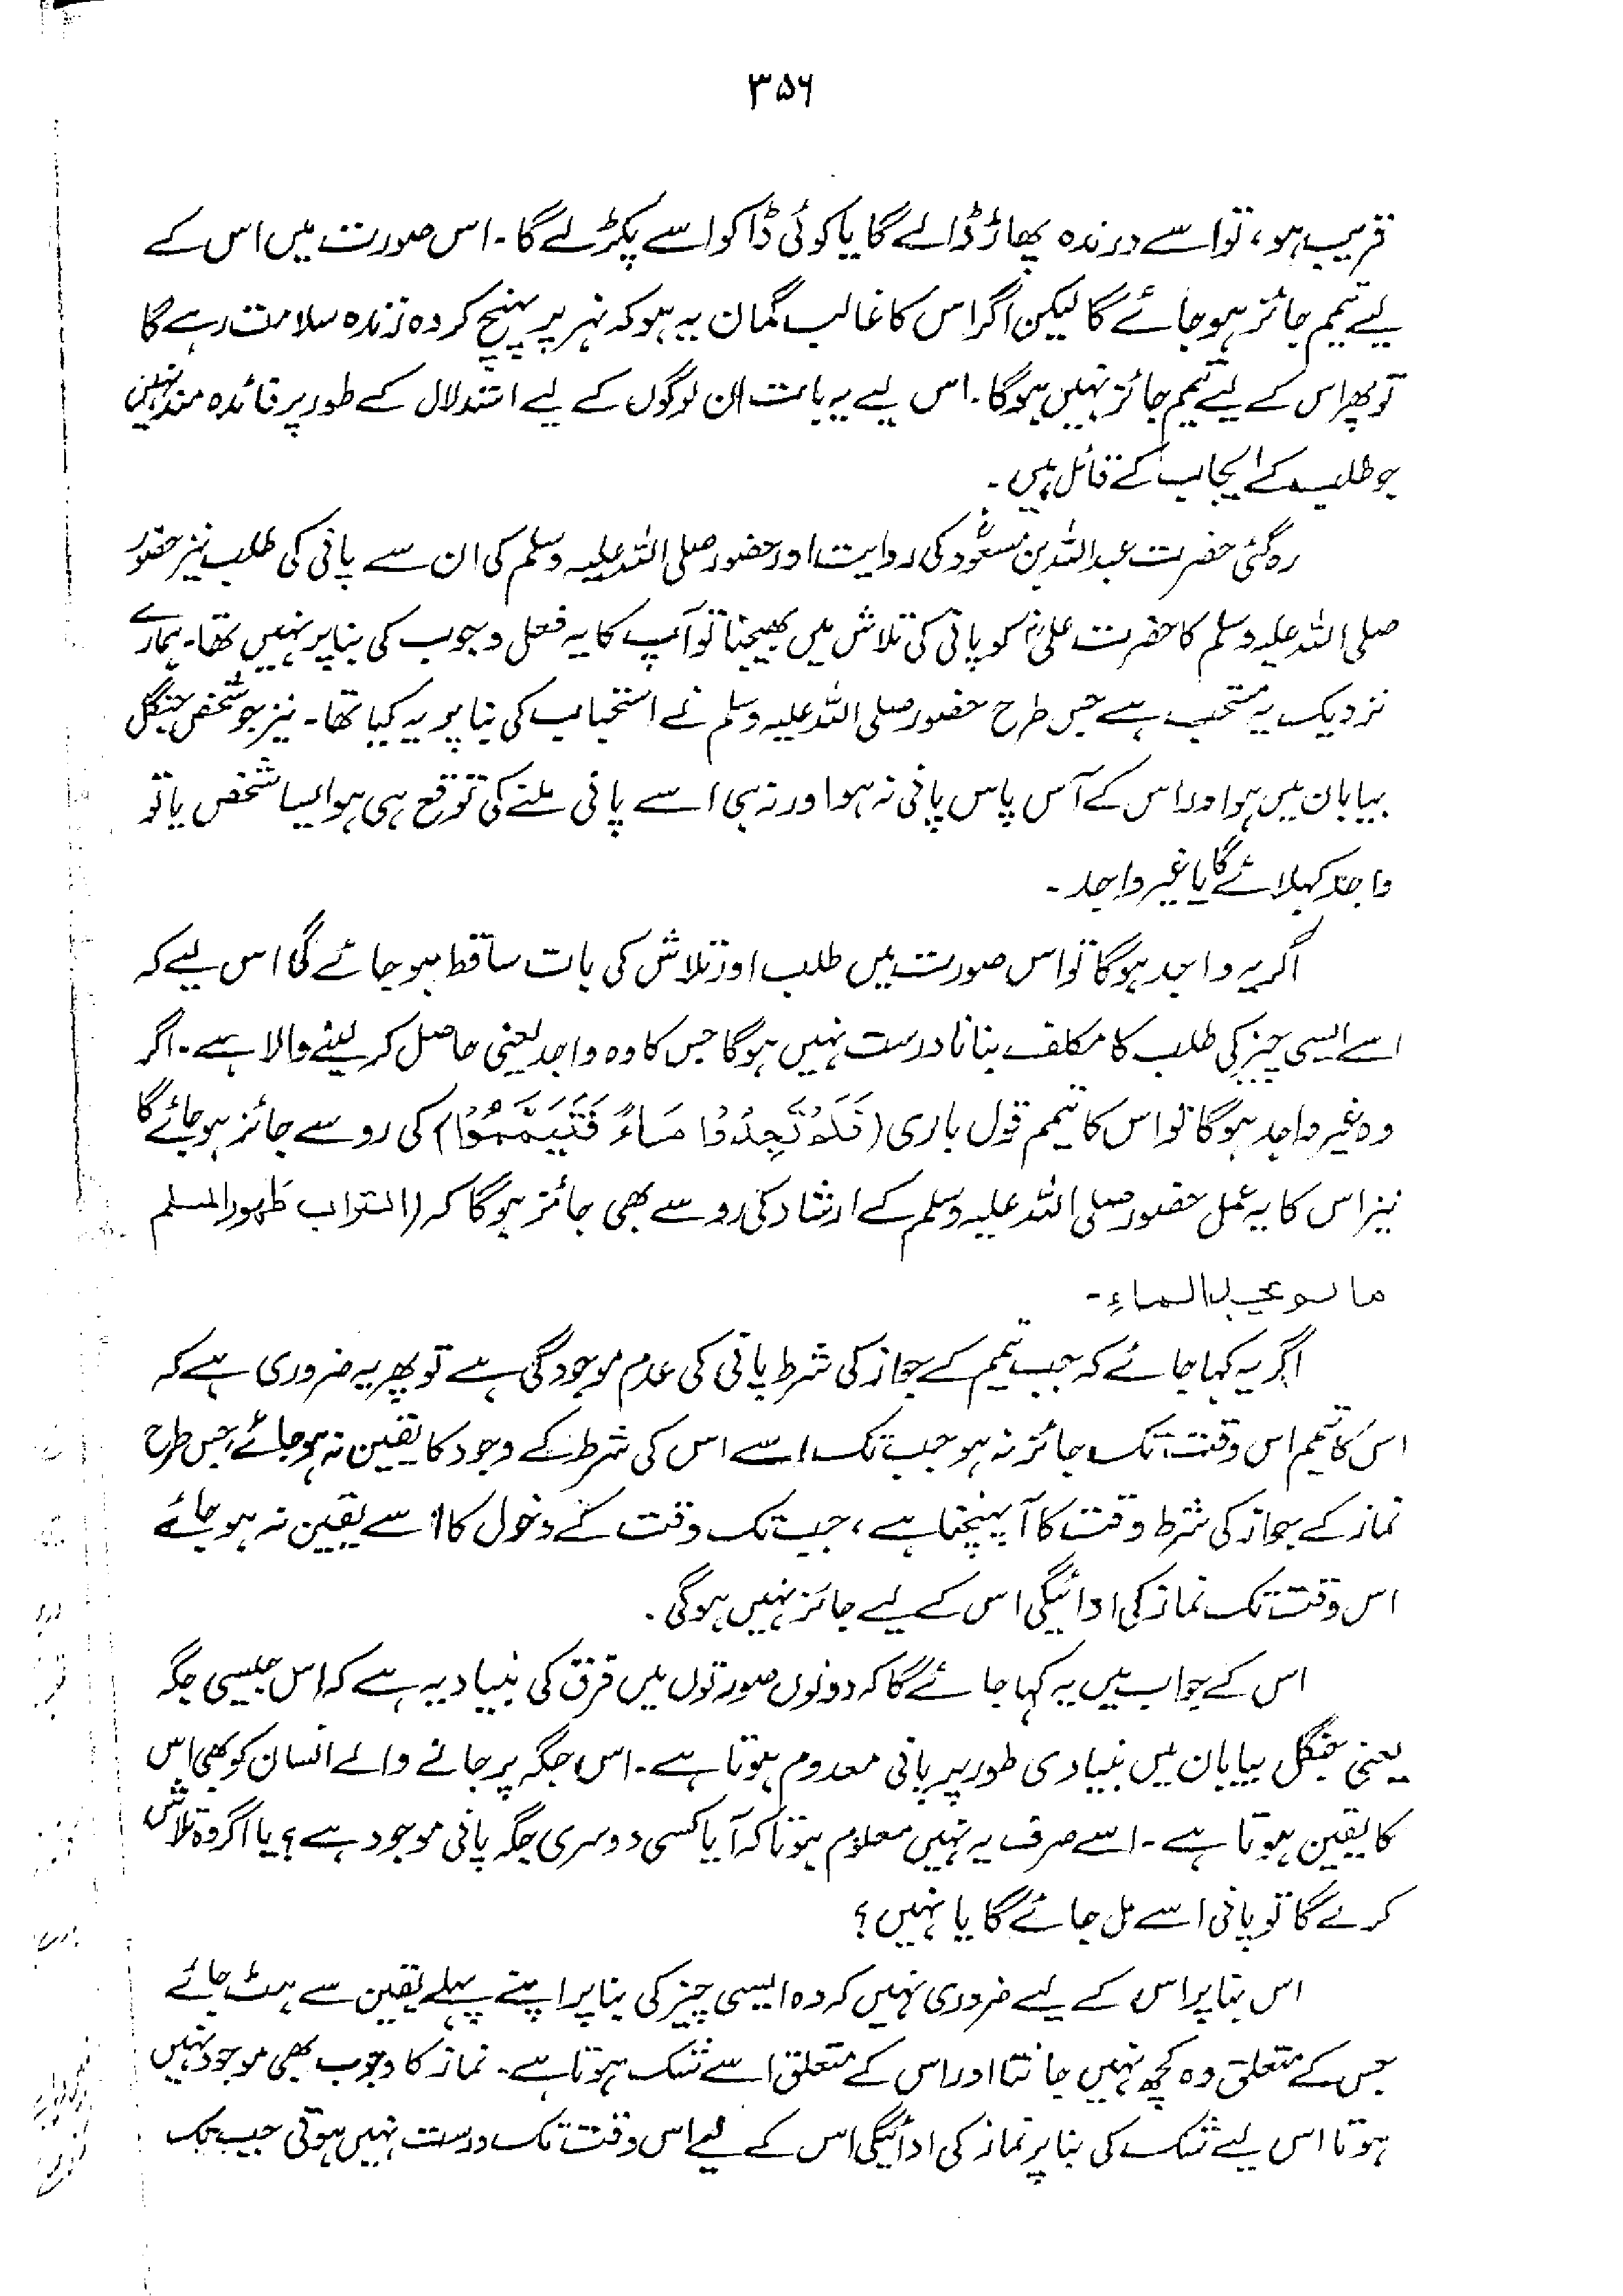 ۳۵۶
قریب ہو، تو اسے درندہ پھاڑ ڈالے گا یا کوئی ڈاکو اسے پکڑ لے گا۔ اس صورت میں اس کے
لیے تیمم جائز ہو جائے گا لیکن اگر اس کا غالب گمان یہ ہو کہ نہر پر پہنچ کر وہ زندہ سلامت رہے گا
تو پھر اس کے لیے تیمم جائز نہیں ہوگا۔ اس لیے یہ بات ان لوگوں کے لیے استدلال کے طور پر فائدہ مند نہیں
جو طلب کے ایجاب کے قائل ہیں۔
رہ گئی حضرت عبداللہ بن مسعودؓ کی روایت اور حضور صلی اللہ علیہ وسلم کی ان سے پانی کی طلب نیز حضور
صلی اللہ علیہ وسلم کا حضرت علیؓ کو پانی کی تلاش میں بھیجنا تو آپ کا یہ فعل وجوب کی بنا پر نہیں تھا۔ ہمارے
نزدیک یہ مستحب ہے جس طرح حضور صلی اللہ علیہ وسلم نے استحباب کی بنا پر یہ کیا تھا۔ نیز جو شخص جنگل
بیابان میں ہو اور اس کے آس پاس پانی نہ ہو اور نہ ہی اسے پانی ملنے کی توقع ہی ہو ایسا شخص یا تو
واجد کہلائے گا یا غیر واجد۔
اگر یہ واجد ہوگا تو اس صورت میں طلب اور تلاش کی بات ساقط ہو جائے گی اس لیے کہ
اسے ایسی چیز کی طلب کا مکلف بنانا درست نہیں ہوگا جس کا وہ واجد یعنی حاصل کر لینے والا ہے۔ اگر
وہ غیر واجد ہوگا تو اس کا تیمم قول باری (فَلَمْ تَجِدُوْا مَاءً فَتَيَمَّمُوْا) کی رو سے جائز ہو جائے گا
نیز اس کا یہ عمل حضور صلی اللہ علیہ وسلم کے ارشاد کی رو سے بھی جائز ہوگا کہ (التراب طهور المسلم
ما لم يجد الماء۔
اگر یہ کہا جائے کہ جب تیمم کے جواز کی شرط پانی کی عدم موجودگی ہے تو پھر یہ ضروری ہے کہ
اس کا تیمم اس وقت تک جائز نہ ہو جب تک اسے اس کی شرط کے وجود کا یقین نہ ہو جائے، جس طرح
نماز کے جواز کی شرط وقت کا آپہنچنا ہے، جب تک وقت کے دخول کا اسے یقین نہ ہو جائے
اس وقت تک نماز کی ادائیگی اس کے لیے جائز نہیں ہوگی۔
اس کے جواب میں یہ کہا جائے گا کہ دونوں صورتوں میں فرق کی بنیاد یہ ہے کہ اس جیسی جگہ
یعنی جنگل بیابان میں بنیادی طور پر پانی معدوم ہوتا ہے۔ اس جگہ پر جانے والے انسان کو بھی اس
کا یقین ہوتا ہے۔ اسے صرف یہ نہیں معلوم ہوتا کہ آیا کسی دوسری جگہ پانی موجود ہے؟ یا اگر وہ تلاش
کرے گا تو پانی اسے مل جائے گا یا نہیں؟
اس بنا پر اس کے لیے ضروری نہیں کہ وہ ایسی چیز کی بنا پر اپنے پہلے یقین سے ہٹ جائے
جس کے متعلق وہ کچھ نہیں جانتا اور اس کے متعلق اسے شک ہوتا ہے۔ نماز کا وجوب بھی موجود نہیں
ہوتا اس لیے شک کی بنا پر نماز کی ادائیگی اس کے لیے اس وقت تک درست نہیں ہوتی جب تک